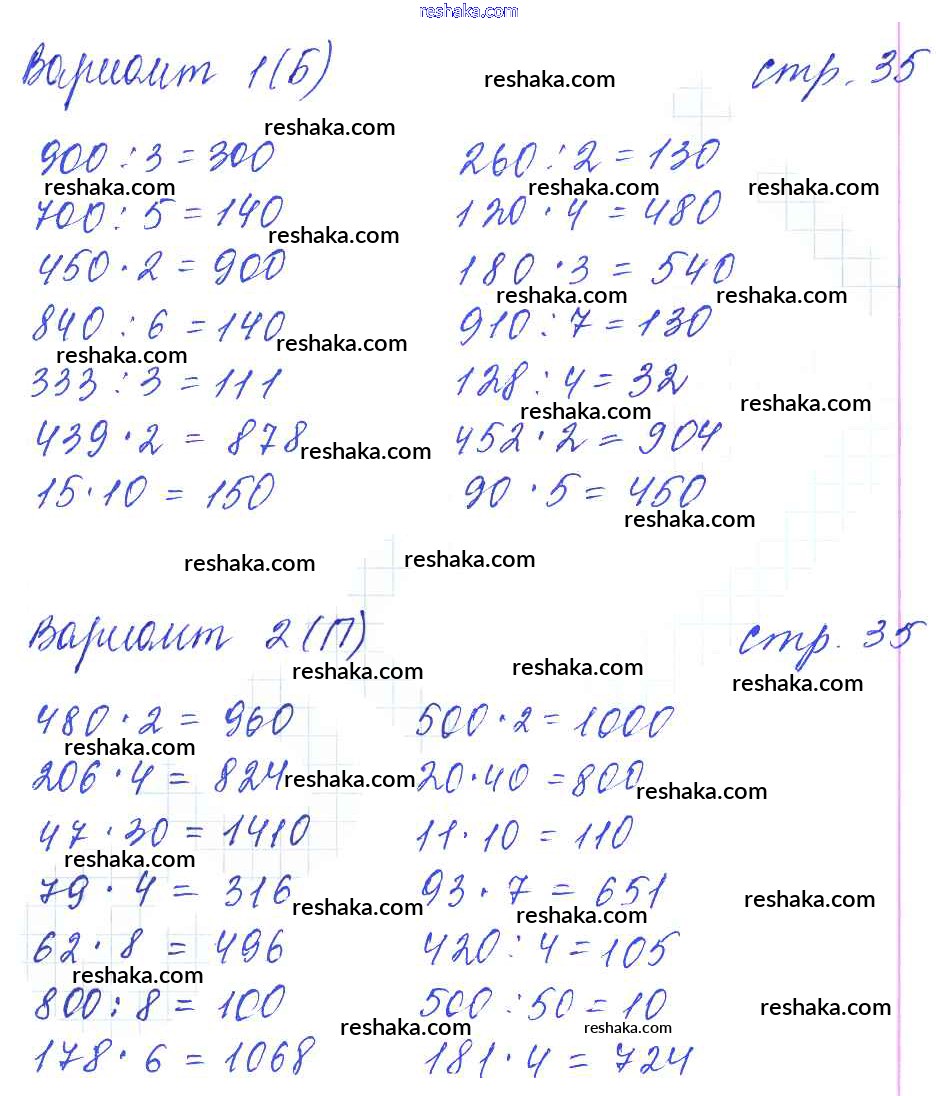 reshaka.com
Вариант 1(Б) reshaka.com стр. 35
reshaka.com
900 : 3 = 300 260 : 2 = 130
reshaka.com reshaka.com reshaka.com
700 : 5 = 140 120 · 4 = 480
reshaka.com
450 · 2 = 900 180 · 3 = 540
reshaka.com reshaka.com
840 : 6 = 140 910 : 7 = 130
reshaka.com reshaka.com
333 : 3 = 111 128 : 4 = 32
reshaka.com reshaka.com
439 · 2 = 878 452 · 2 = 904
reshaka.com
15 · 10 = 150 90 · 5 = 450
reshaka.com
reshaka.com reshaka.com
Вариант 2(П) стр. 35
reshaka.com reshaka.com reshaka.com
480 · 2 = 960 500 · 2 = 1000
reshaka.com
206 · 4 = 824 reshaka.com 20 · 40 = 800 reshaka.com
47 · 30 = 1410 11 · 10 = 110
reshaka.com
79 · 4 = 316 93 · 7 = 651 reshaka.com
reshaka.com reshaka.com
62 · 8 = 496 420 : 4 = 105
reshaka.com
800 : 8 = 100 500 : 50 = 10 reshaka.com
reshaka.com reshaka.com
178 · 6 = 1068 181 · 4 = 724